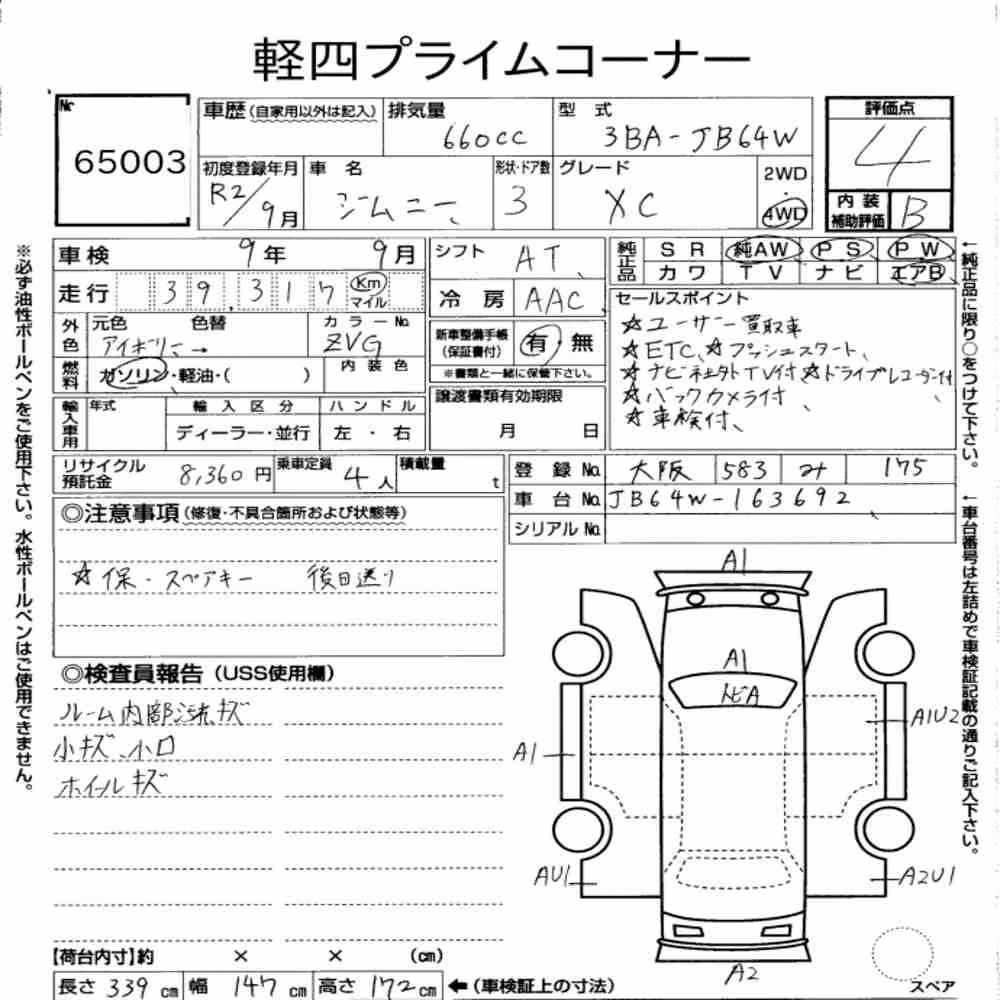 軽四プライムコーナー
No. 65003
車歴(自家用以外は記入) 排気量 660cc 型式 3BA-JB64W 評価点 4
初度登録年月 R2/9月 車名 ジムニー 形状・ドア数 3 グレード XC 2WD・4WD 内装補助評価 B
車検 9年 9月 シフト AT 純正品 SR 純AW PS PW
カワ TV ナビ エアB
走行 39,317 Km マイル 冷房 AAC
セールスポイント
☆ユーザー買取車
☆ETC、☆プッシュスタート、
☆ナビ社外TV付、☆ドライブレコーダー付
☆バックカメラ付、
☆車検付、
外色 元色 アイボリー → 色替 カラーNo. ZVG
新車整備手帳(保証書付) 有・無
※書類と一緒に保管下さい。
燃料 ガソリン・軽油・( ) 内装色
譲渡書類有効期限 月 日
輸入車用 年式 輸入区分 ハンドル
ディーラー・並行 左・右
リサイクル預託金 8,360円 乗車定員 4人 積載量 t
登録No. 大阪 583 み 175
車台No. JB64W-163692
シリアルNo.
◎注意事項(修復・不具合箇所および状態等)
☆保・スペアキー 後日送り
◎検査員報告(USS使用欄)
ルーム内部汚れキズ
小キズ、小凹
ホイールキズ
A1
A1
トビA
A1
A1U2
AU1
A2U1
A2
スペア
【荷台内寸】約 × × (cm)
長さ 339cm 幅 147cm 高さ 172cm ←(車検証上の寸法)
※必ず油性ボールペンをご使用下さい。水性ボールペンはご使用できません。
←純正品に限り○をつけて下さい。
←車台番号は左詰めで車検証記載の通りご記入下さい。